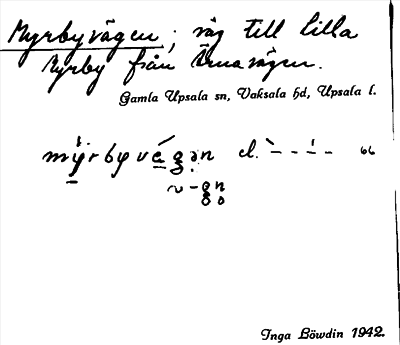 Myrbyvägen; väg till Lilla
Myrby från Ärnavägen.
Gamla Upsala sn, Vaksala hd, Upsala l.
mýrbyvégən el.
~ -gn
Inga Löwdin 1942.